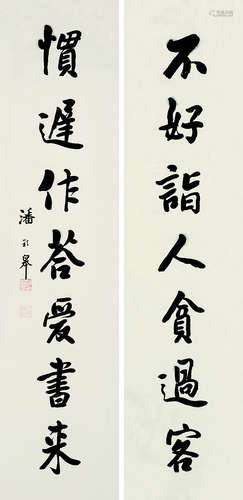 不好詣人貪過客
慣遲作荅愛書來
潘齡皋